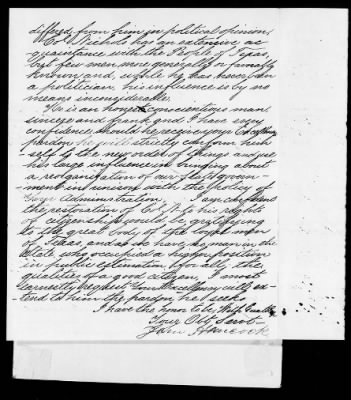 differed from him in political opinion,
Col Nichols has an extensive ac
quaintance with the People of Texas,
but few men more generally or favorably
known and, while he has never been
a politician his influence is by no
means inconsiderable.
He is an honest conscientious man,
sincere and frank and I have every
confidence, should he receive your Excellency
pardon he will strictly conform him
self to the new order of things and use
his large influence in bringing about
a reorganization of our State govern-
ment in unison with the policy of
Your Administration. I am confident
the restoration of Col N. to his rights
of citizenship would be gratifying
to the great body of the loyal men
of Texas, and as we have no man in the
State who occupied a higher position
in public estimation for all the
qualities of a good citizen, I most
earnestly request Your Excellency will ex-
tend to him the pardon he seeks
I have the honor to be, With
Your Obt Servt
John Hancock